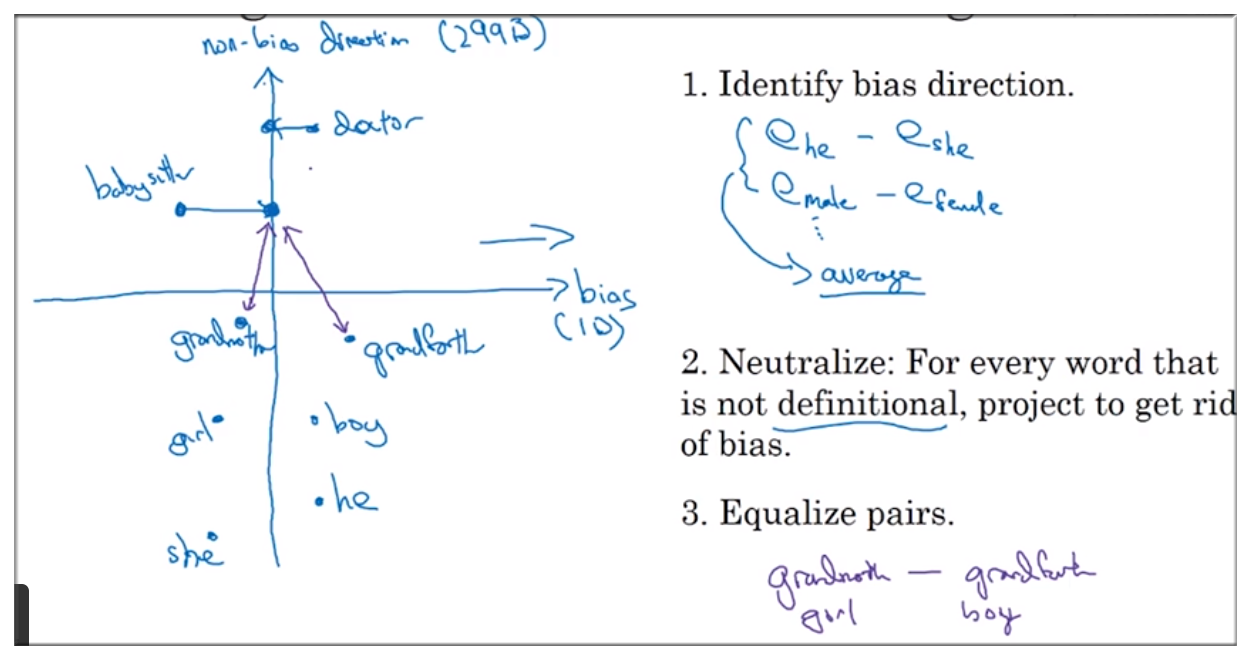 non-bias direction (299D)
doctor
babysitter
bias
(1D)
grandmoth
grandfarth
girl
boy
he
she
1. Identify bias direction.
e he - e she
e male - e female
⋮
average
2. Neutralize: For every word that
is not definitional, project to get rid
of bias.
3. Equalize pairs.
grandmoth – grandfath
girl boy